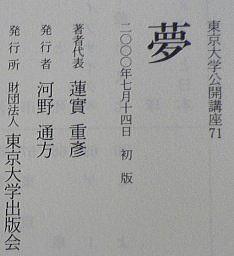 東京大学公開講座71
夢
二〇〇〇年七月十四日 初版
著者代表 蓮實 重彥
発行者 河野 通方
発行所 財団法人 東京大学出版会